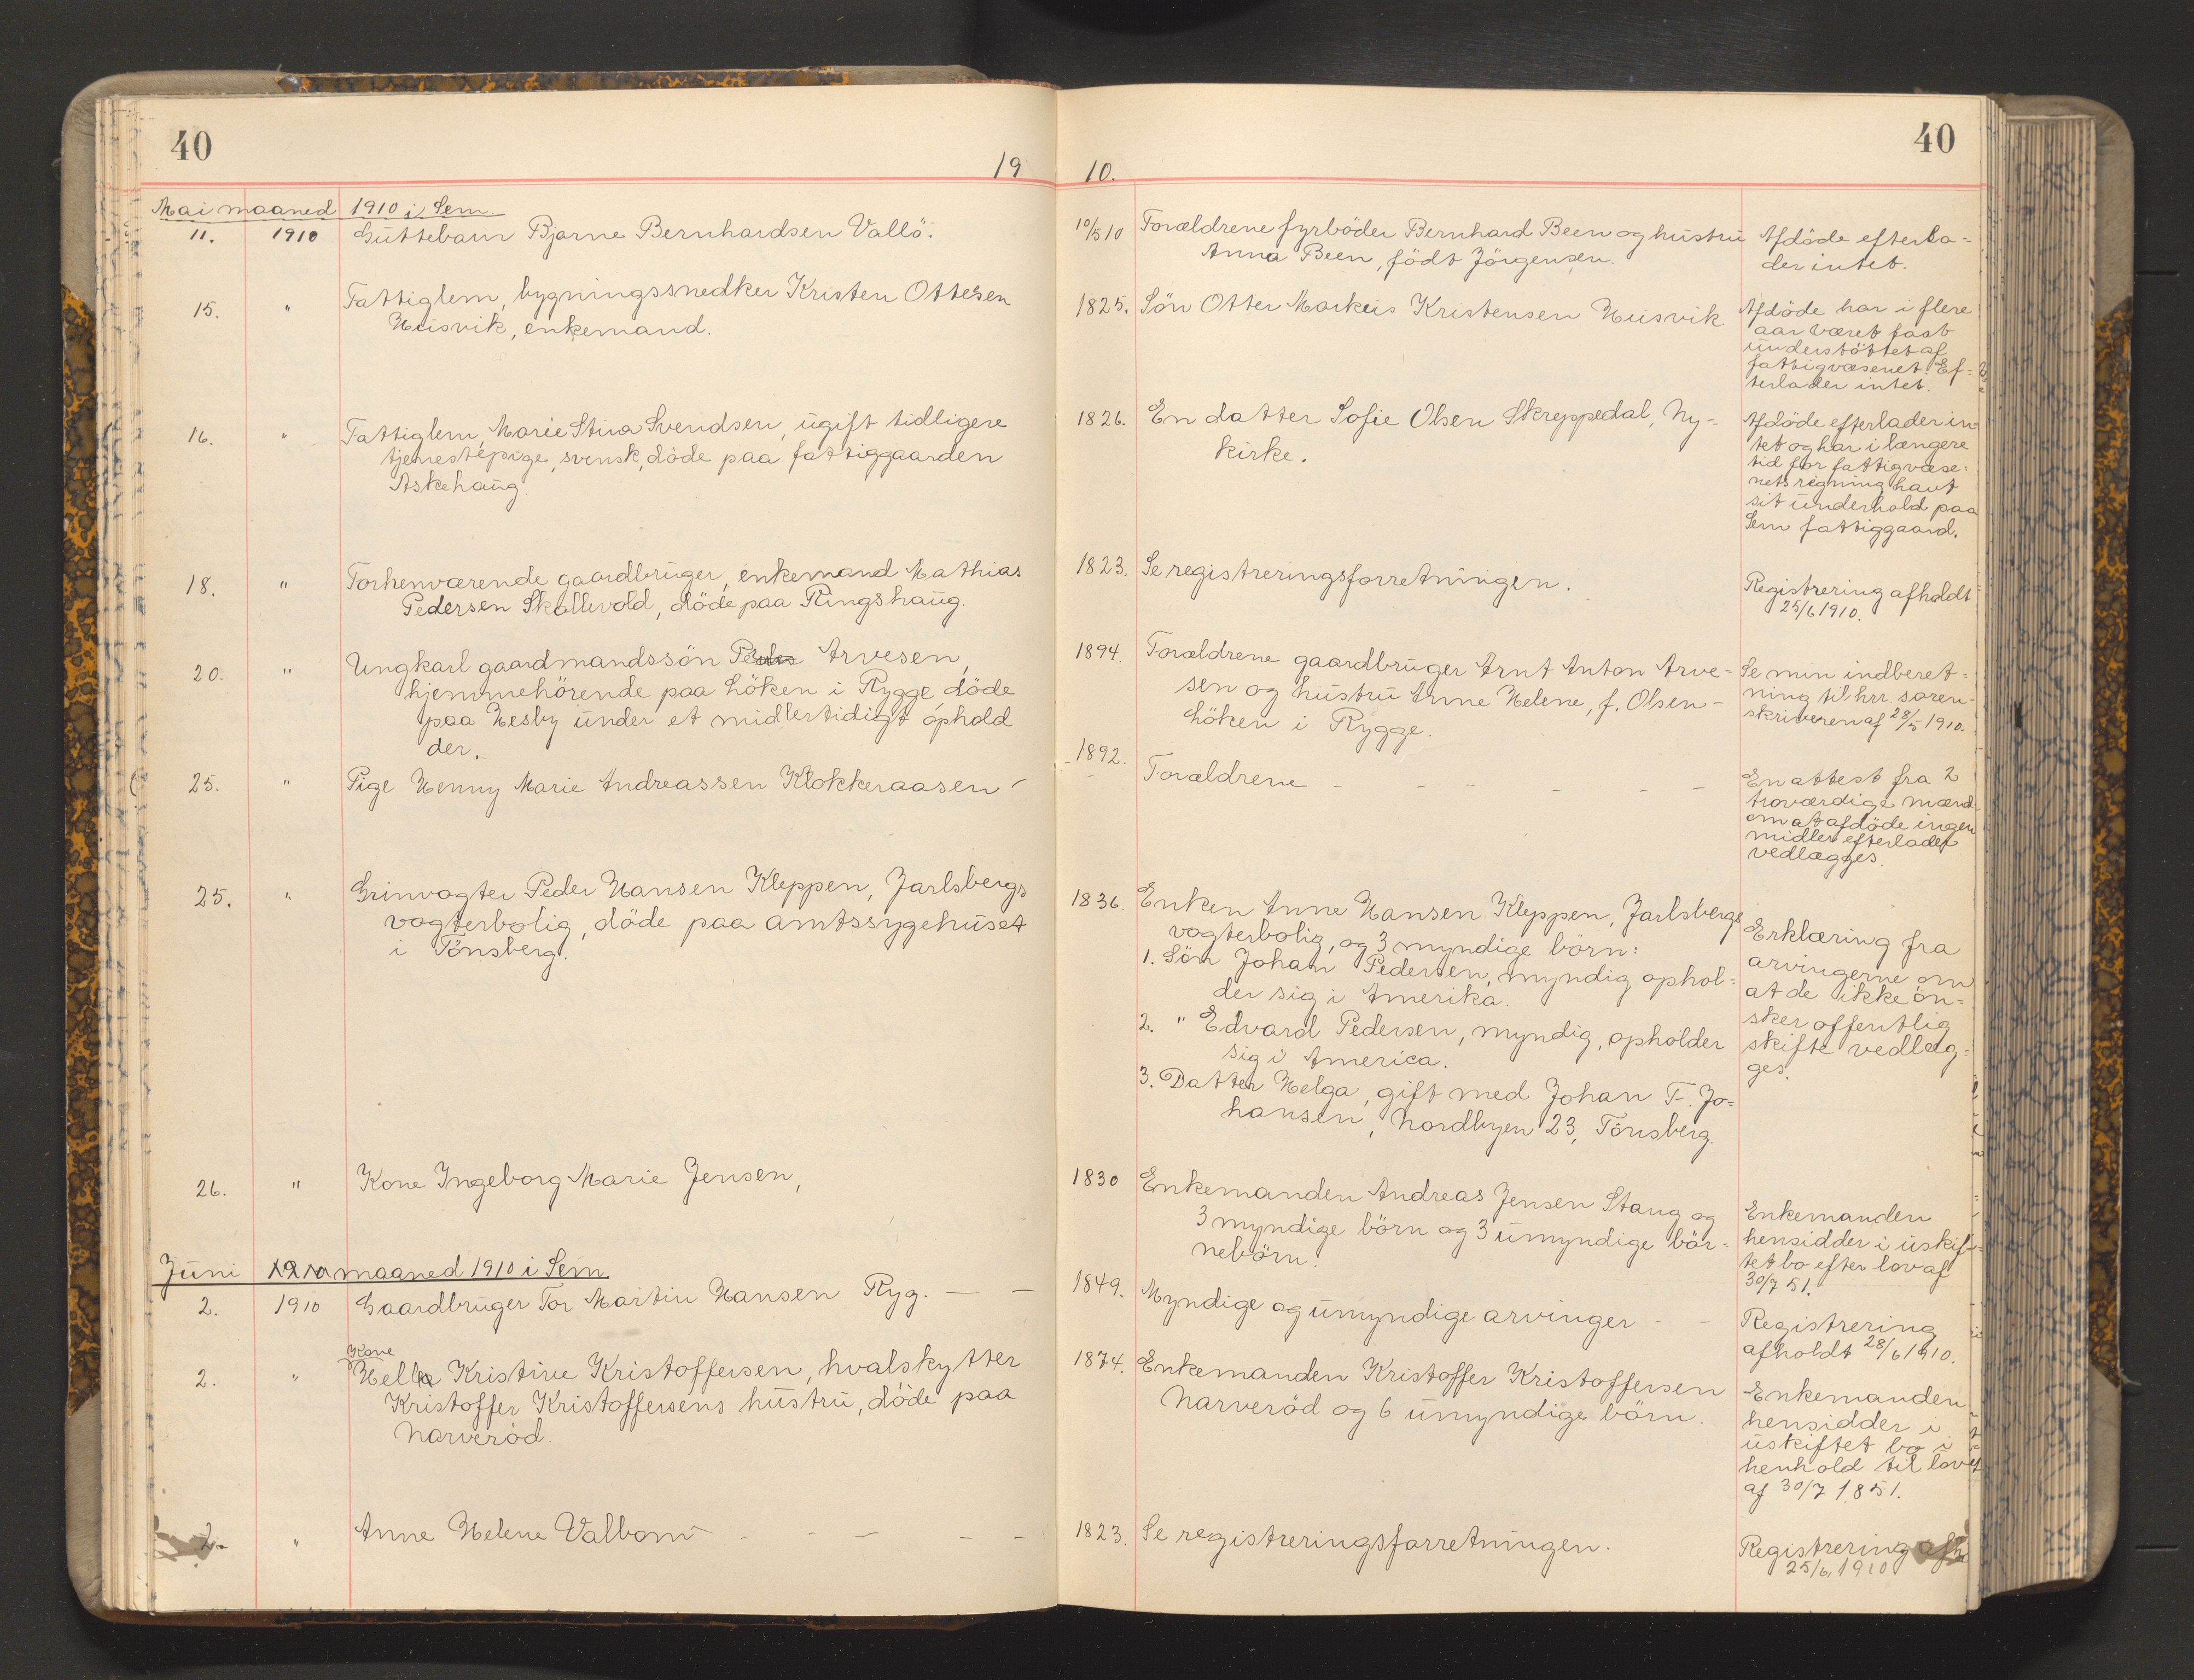 40
19
Mai maaned 1910 i Sem.
11. 1910 Guttebarn Bjarne Bernhardsen Vallö.
15. " Fattiglem, bygningssnedker Kristen Ottesen
Husvik, enkemand.
16. " Fattiglem, Marie Stina Svendsen, ugift tidligere
tjenestepige, svensk, döde paa fattiggaarden
Askehaug.
18. " Forhenværende gaardbruger, enkemand Mathias
Pedersen Skallevold, döde paa Ringshaug.
20. " Ungkarl gaardmandssön Peder Arvesen,
hjemmehörende paa Löken i Rygge, döde
paa Hesby under et midlertidigt ophold
der.
25. " Pige Henny Marie Andreassen Klokkeraasen -
25. " Grinvogter Peder Hansen Kleppen, Jarlsbergs
vogterbolig, döde paa amtssygehuset
i Tönsberg.
26. " Kone Ingeborg Marie Jensen,
Juni maaned 1910 i Sem
2. 1910 Gaardbruger Tor Martin Hansen Ryg. — —
Kone
2. " Helle Kristine Kristoffersen, hvalskytter
Kristoffer Kristoffersens hustru, döde paa
Narveröd.
2. " Anne Helene Valbom - - - — — —
40
10.
10/5 10 Forældrene fyrböder Bernhard Been og hustru
Anna Been, födt Jörgensen.
Afdöde efterla=
der intet.
1825. Sön Otter Markus Kristensen Husvik
Afdöde har i flere
aar været fast
understöttet af
fattigvæsenet. Ef=
terlader intet.
1826. En datter Sofie Olsen Skreppedal, Ny=
kirke.
Afdöde efterlader in=
tet og har i længere
tid for fattigvæse=
nets regning havt
sit underhold paa
Sem fattiggaard.
1823. Se registreringsforretningen.
Registrering afholdt
25/6 1910.
1894. Forældrene gaardbruger Arnt Anton Arve-
sen og hustru Anne Helene, f. Olsen -
Löken i Rygge.
Se min indberet=
ning til hrr. soren-
skriveren af 28/5 1910.
1892. Forældrene - - - - - -
En attest fra 2
troværdige mænd
om at afdöde ingen
midler efterlader
vedlægges.
1836. Enken Anne Hansen Kleppen, Jarlsbergs
vogterbolig, og 3 myndige börn:
1. Sön Johan Pedersen, myndig ophol=
der sig i Amerika.
2. " Edvard Pedersen, myndig, opholder
sig i America.
3. Datter Helga, gift med Johan F. Jo=
hansen, Nordbyen 23, Tönsberg.
Erklæring fra
arvingerne om
at de ikke ön=
sker offentlig
skifte vedlæg=
ges.
1830 Enkemanden Andreas Jensen Stang og
3 myndige börn og 3 umyndige bör=
nebörn.
Enkemanden
hensidder i uskif=
tet bo efter lov af
30/7 51.
1849. Myndige og umyndige arvinger - -
Registrering
afholdt 28/6 1910.
1874. Enkemanden Kristoffer Kristoffersen
Narveröd og 6 umyndige börn.
Enkemanden
hensidder i
uskiftet bo i
henhold til lov
af 30/7 1851.
1823. Se registreringsforretningen.
Registrering afh
25/6 1910